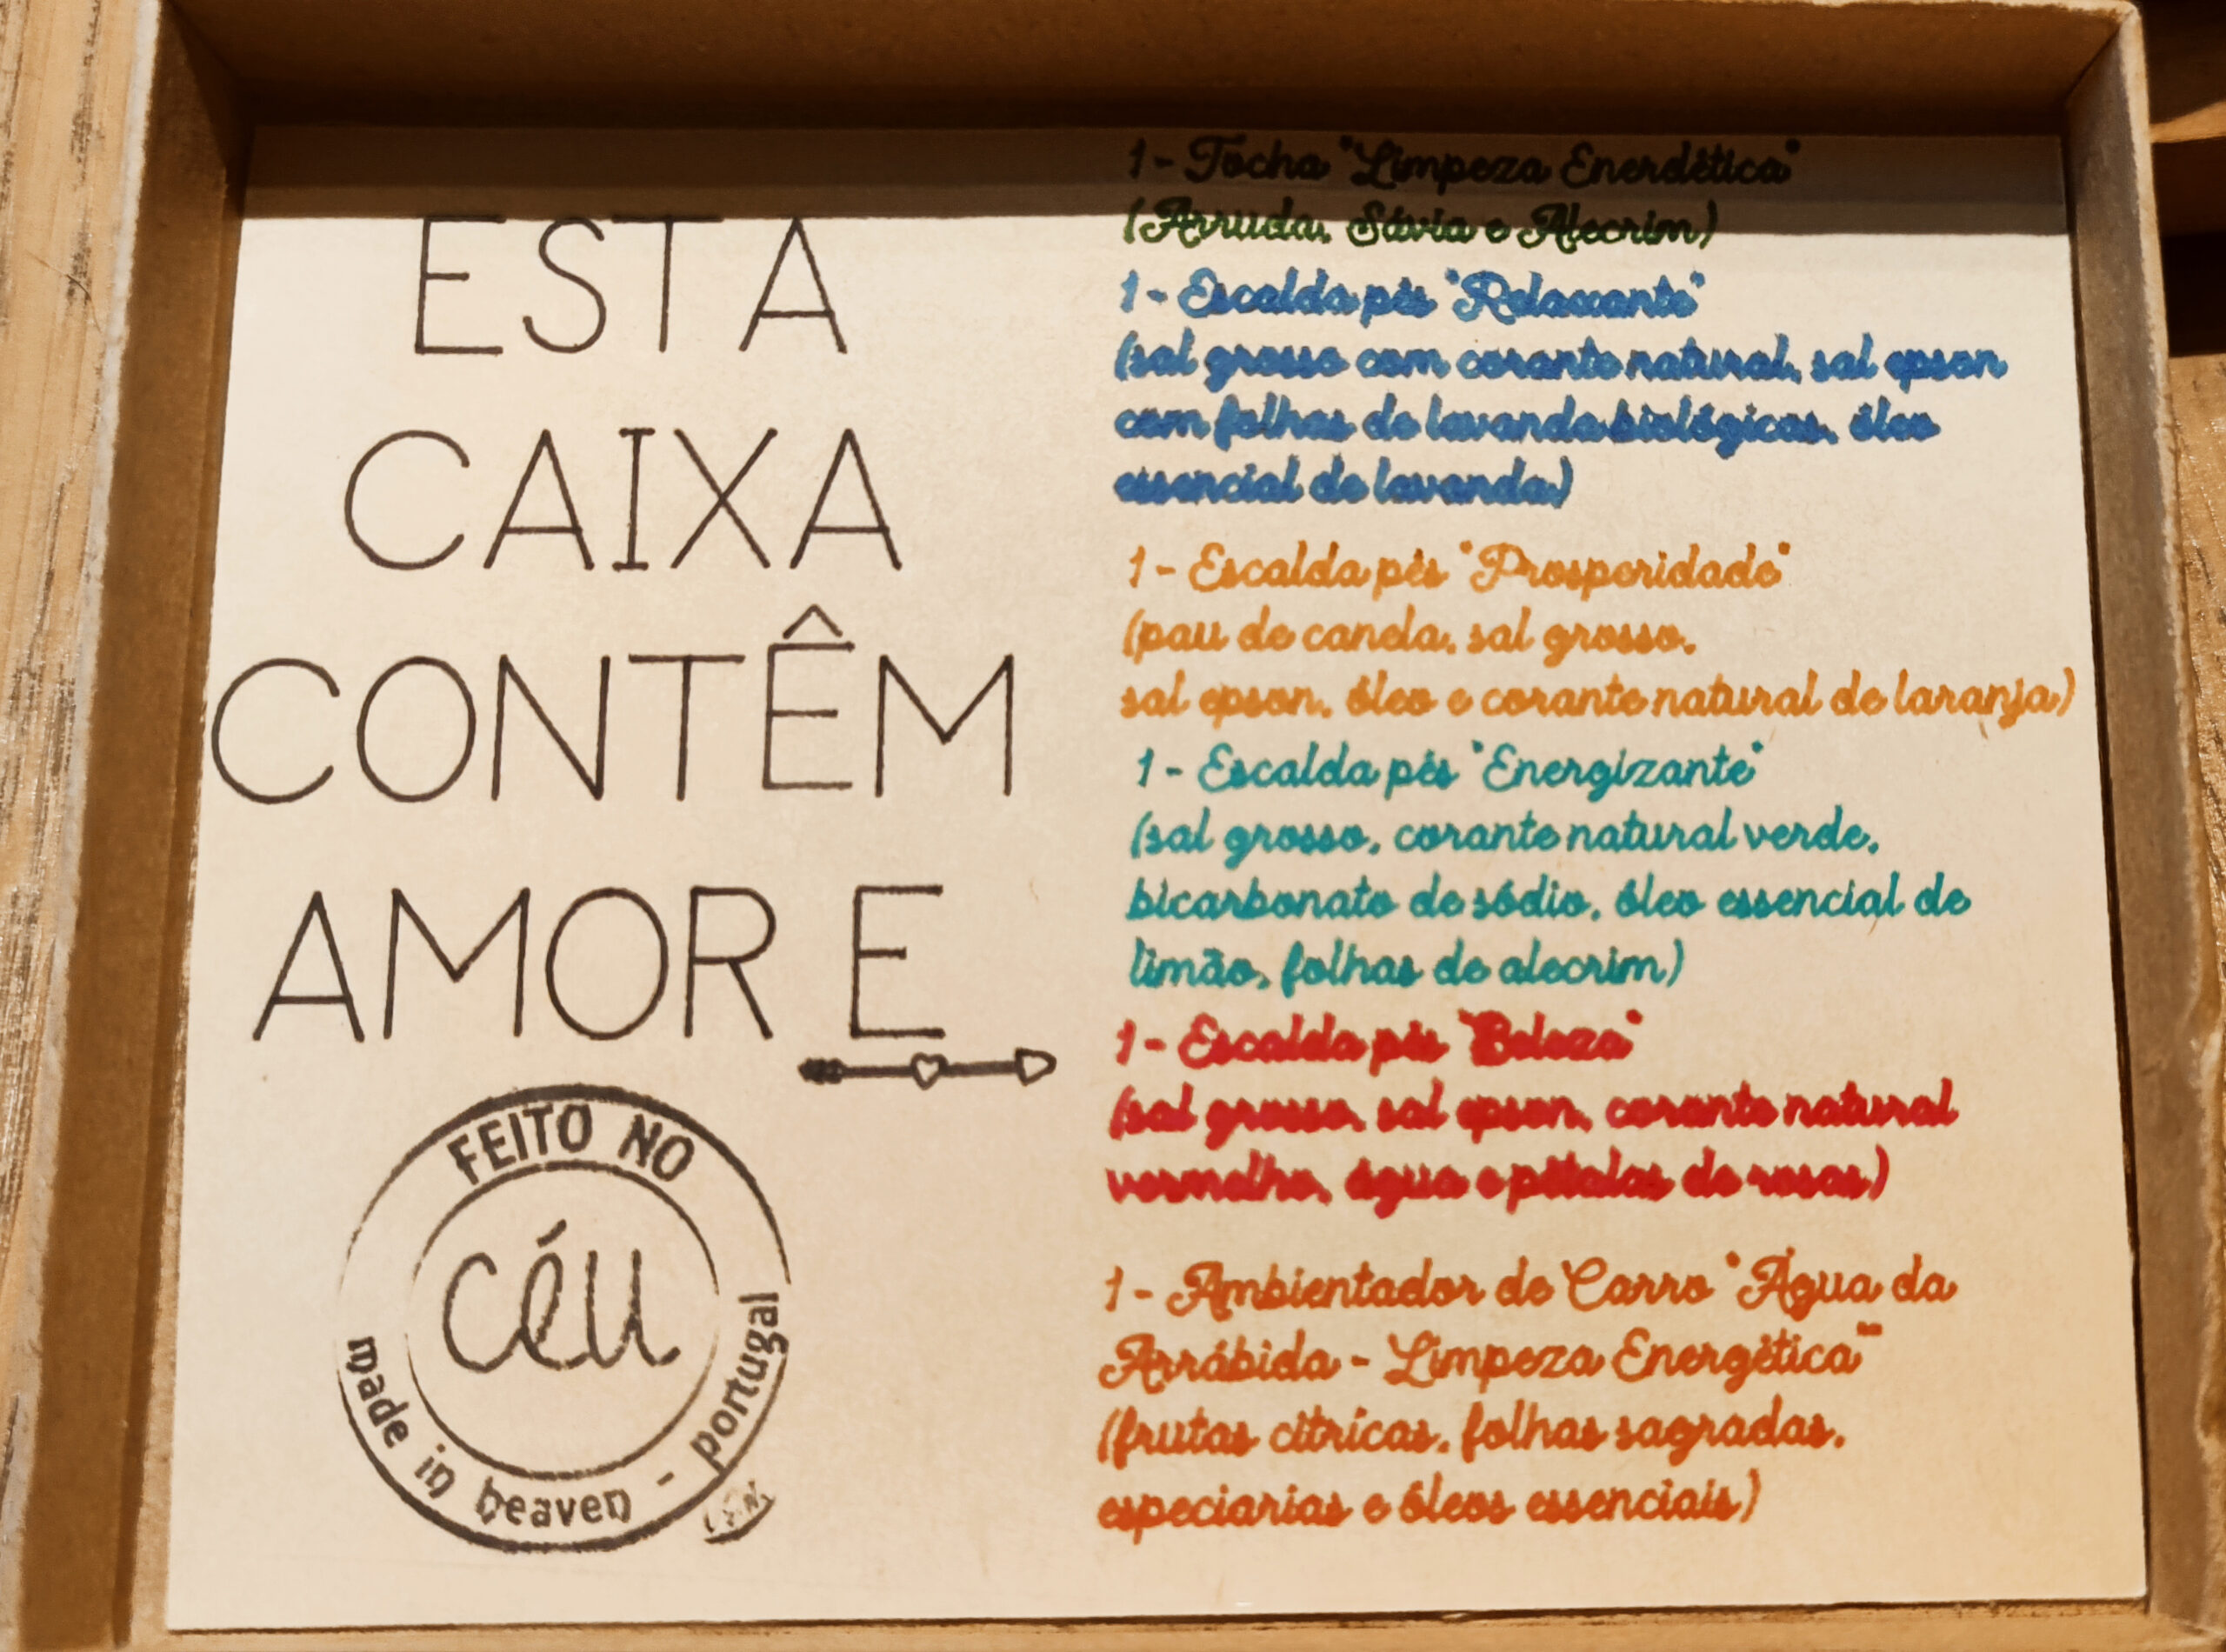 ESTA
CAIXA
CONTÊM
AMOR E
FEITO NO
céu
made in heaven - portugal
1 - Tocha "Limpeza Enerdética"
(Arruda, Sávia e Alecrim)
1 - Escalda pés "Relaxante"
(sal grosso com corante natural, sal epson
com folhas de lavanda biológicas, óleo
essencial de lavanda)
1 - Escalda pés "Prosperidade"
(pau de canela, sal grosso,
sal epson, óleo e corante natural de laranja)
1 - Escalda pés "Energizante"
(sal grosso, corante natural verde,
bicarbonato de sódio, óleo essencial de
limão, folhas de alecrim)
1 - Escalda pés "Beleza"
(sal grosso, sal epson, corante natural
vermelho, água e pétalas de rosas)
1 - Ambientador de Carro "Água da
Arrábida - Limpeza Energética""
(frutas cítricas, folhas sagradas,
especiarias e óleos essenciais)